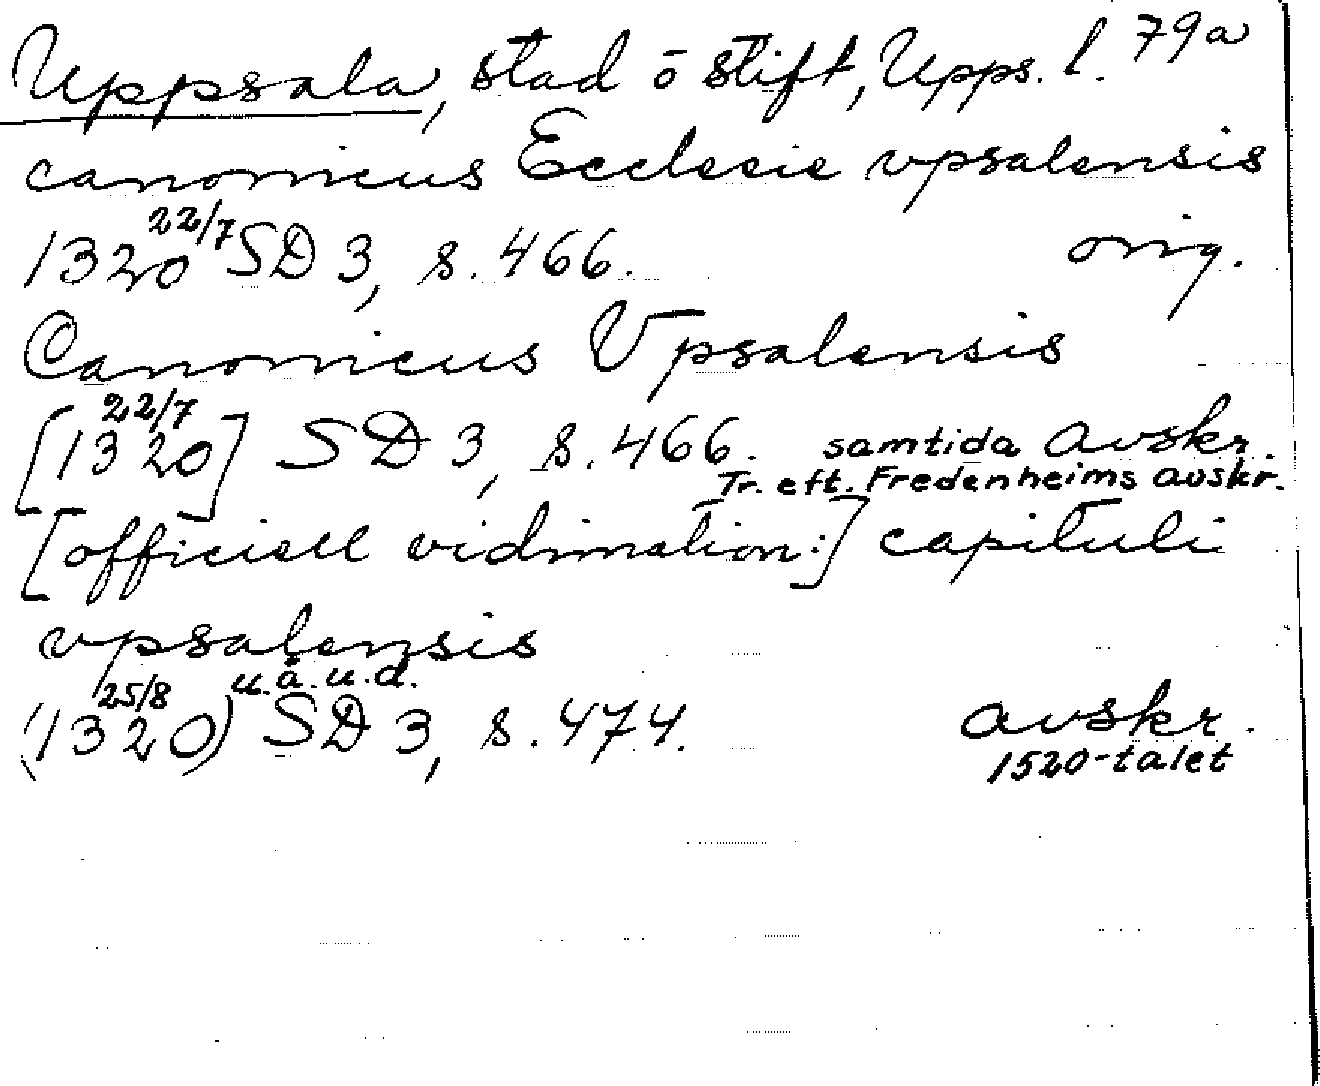 Uppsala, stad o stift, Upps. l. 79a
canonicus Ecclesie vpsalensis
1320 22/7 SD 3, s. 466. orig.
Canonicus Vpsalensis
[1320] 22/7 SD 3, s. 466. samtida avskr.
Tr. eft. Fredenheims avskr.
[officiell vidimation:] capituli
vpsalensis
(1320) 25/8 u.å.u.d. SD 3, s. 474. avskr.
1520-talet